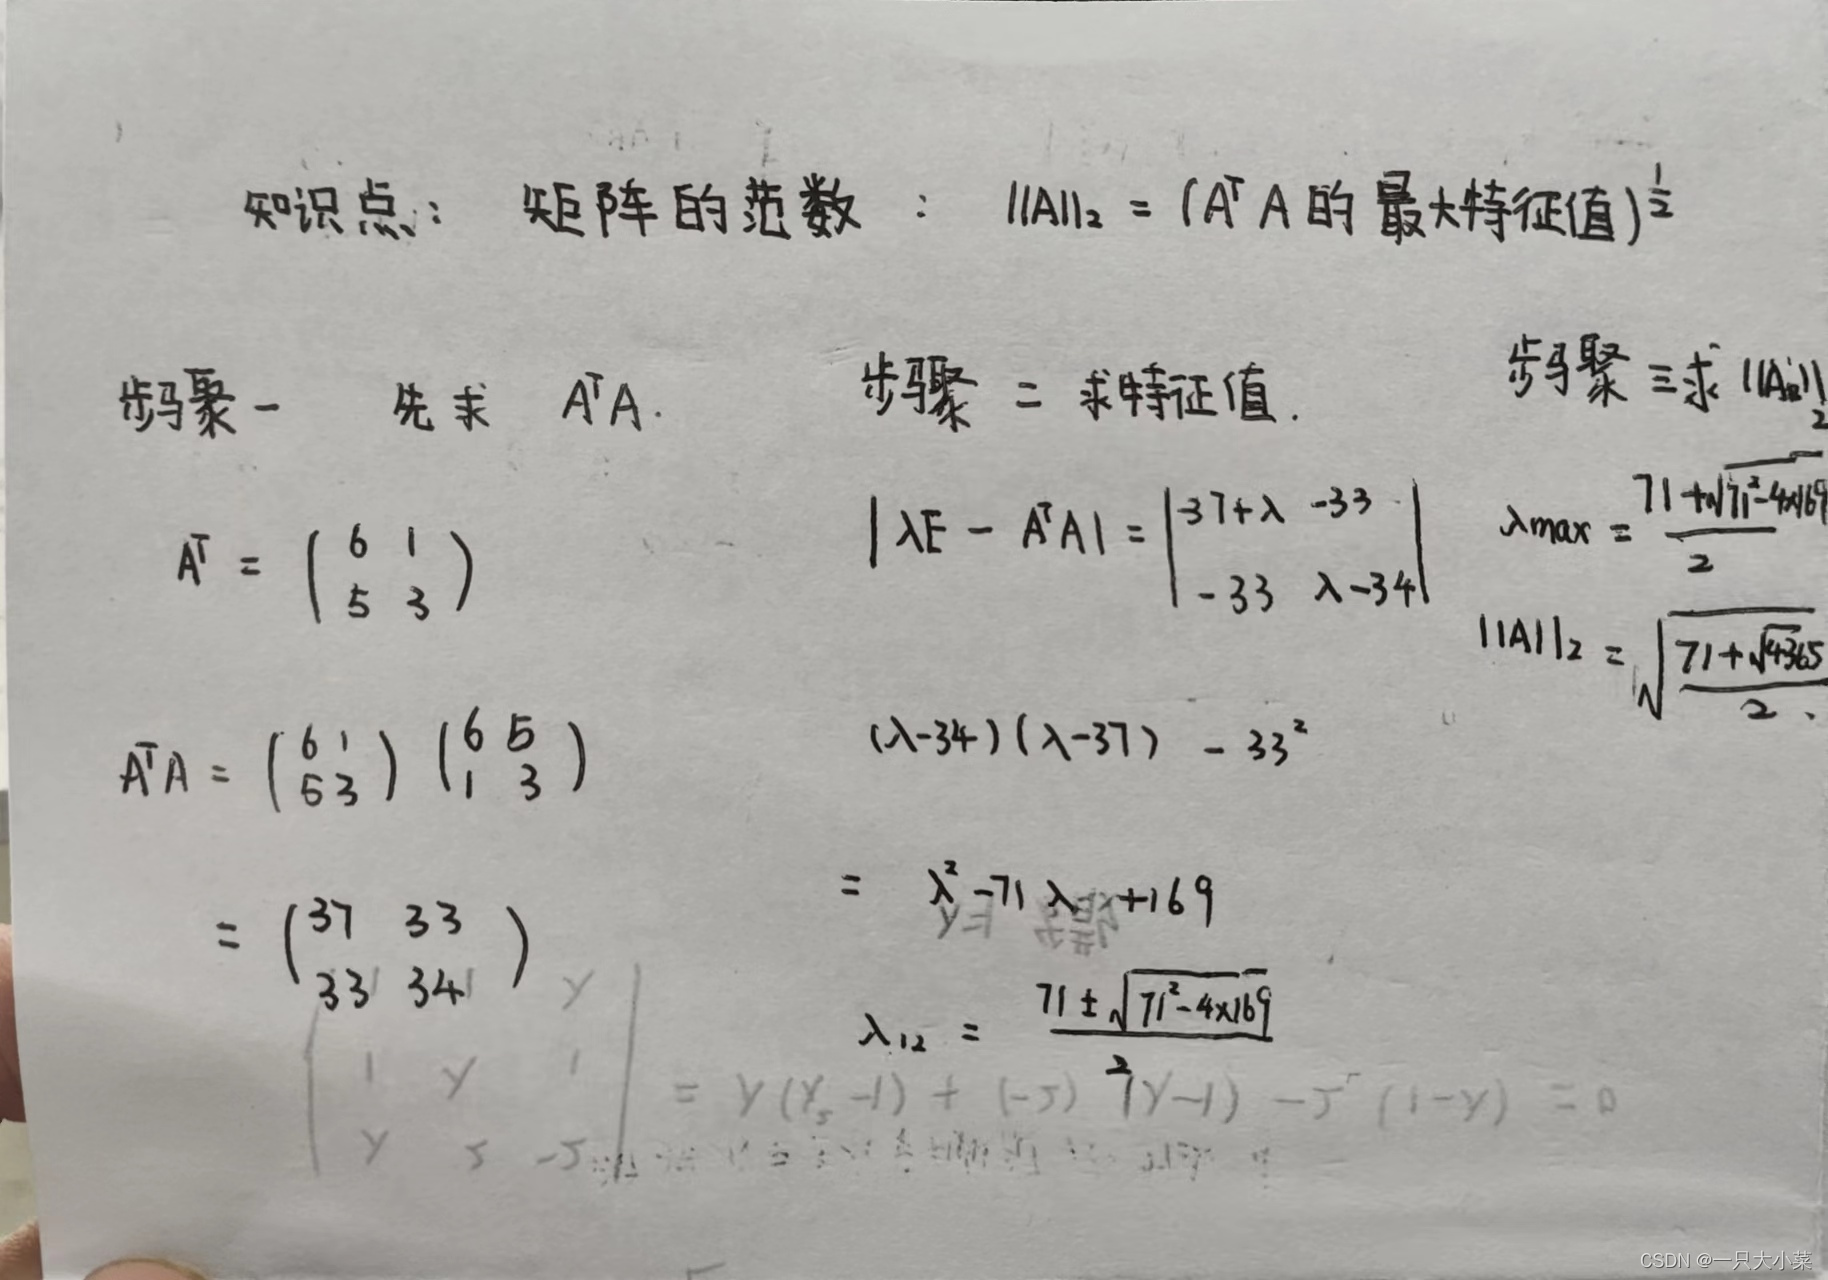 知识点: 矩阵的范数 : ||A||₂ = (AᵀA的最大特征值)^½
步骤一 先求 AᵀA.
Aᵀ = ( 6 1
5 3 )
AᵀA = ( 6 1 ) ( 6 5 )
( 5 3 ) ( 1 3 )
= ( 37 33
33 34 )
步骤二 求特征值.
|λE - AᵀA| = | -37+λ -33 |
| -33 λ-34 |
(λ-34)(λ-37) - 33²
= λ² -71λ +169
λ₁₂ = (71 ± √(71²-4×169)) / 2
步骤三求 ||A||₂
λmax = (71+√(71²-4×169)) / 2
||A||₂ = √((71+√4365) / 2).
CSDN @一只大小菜